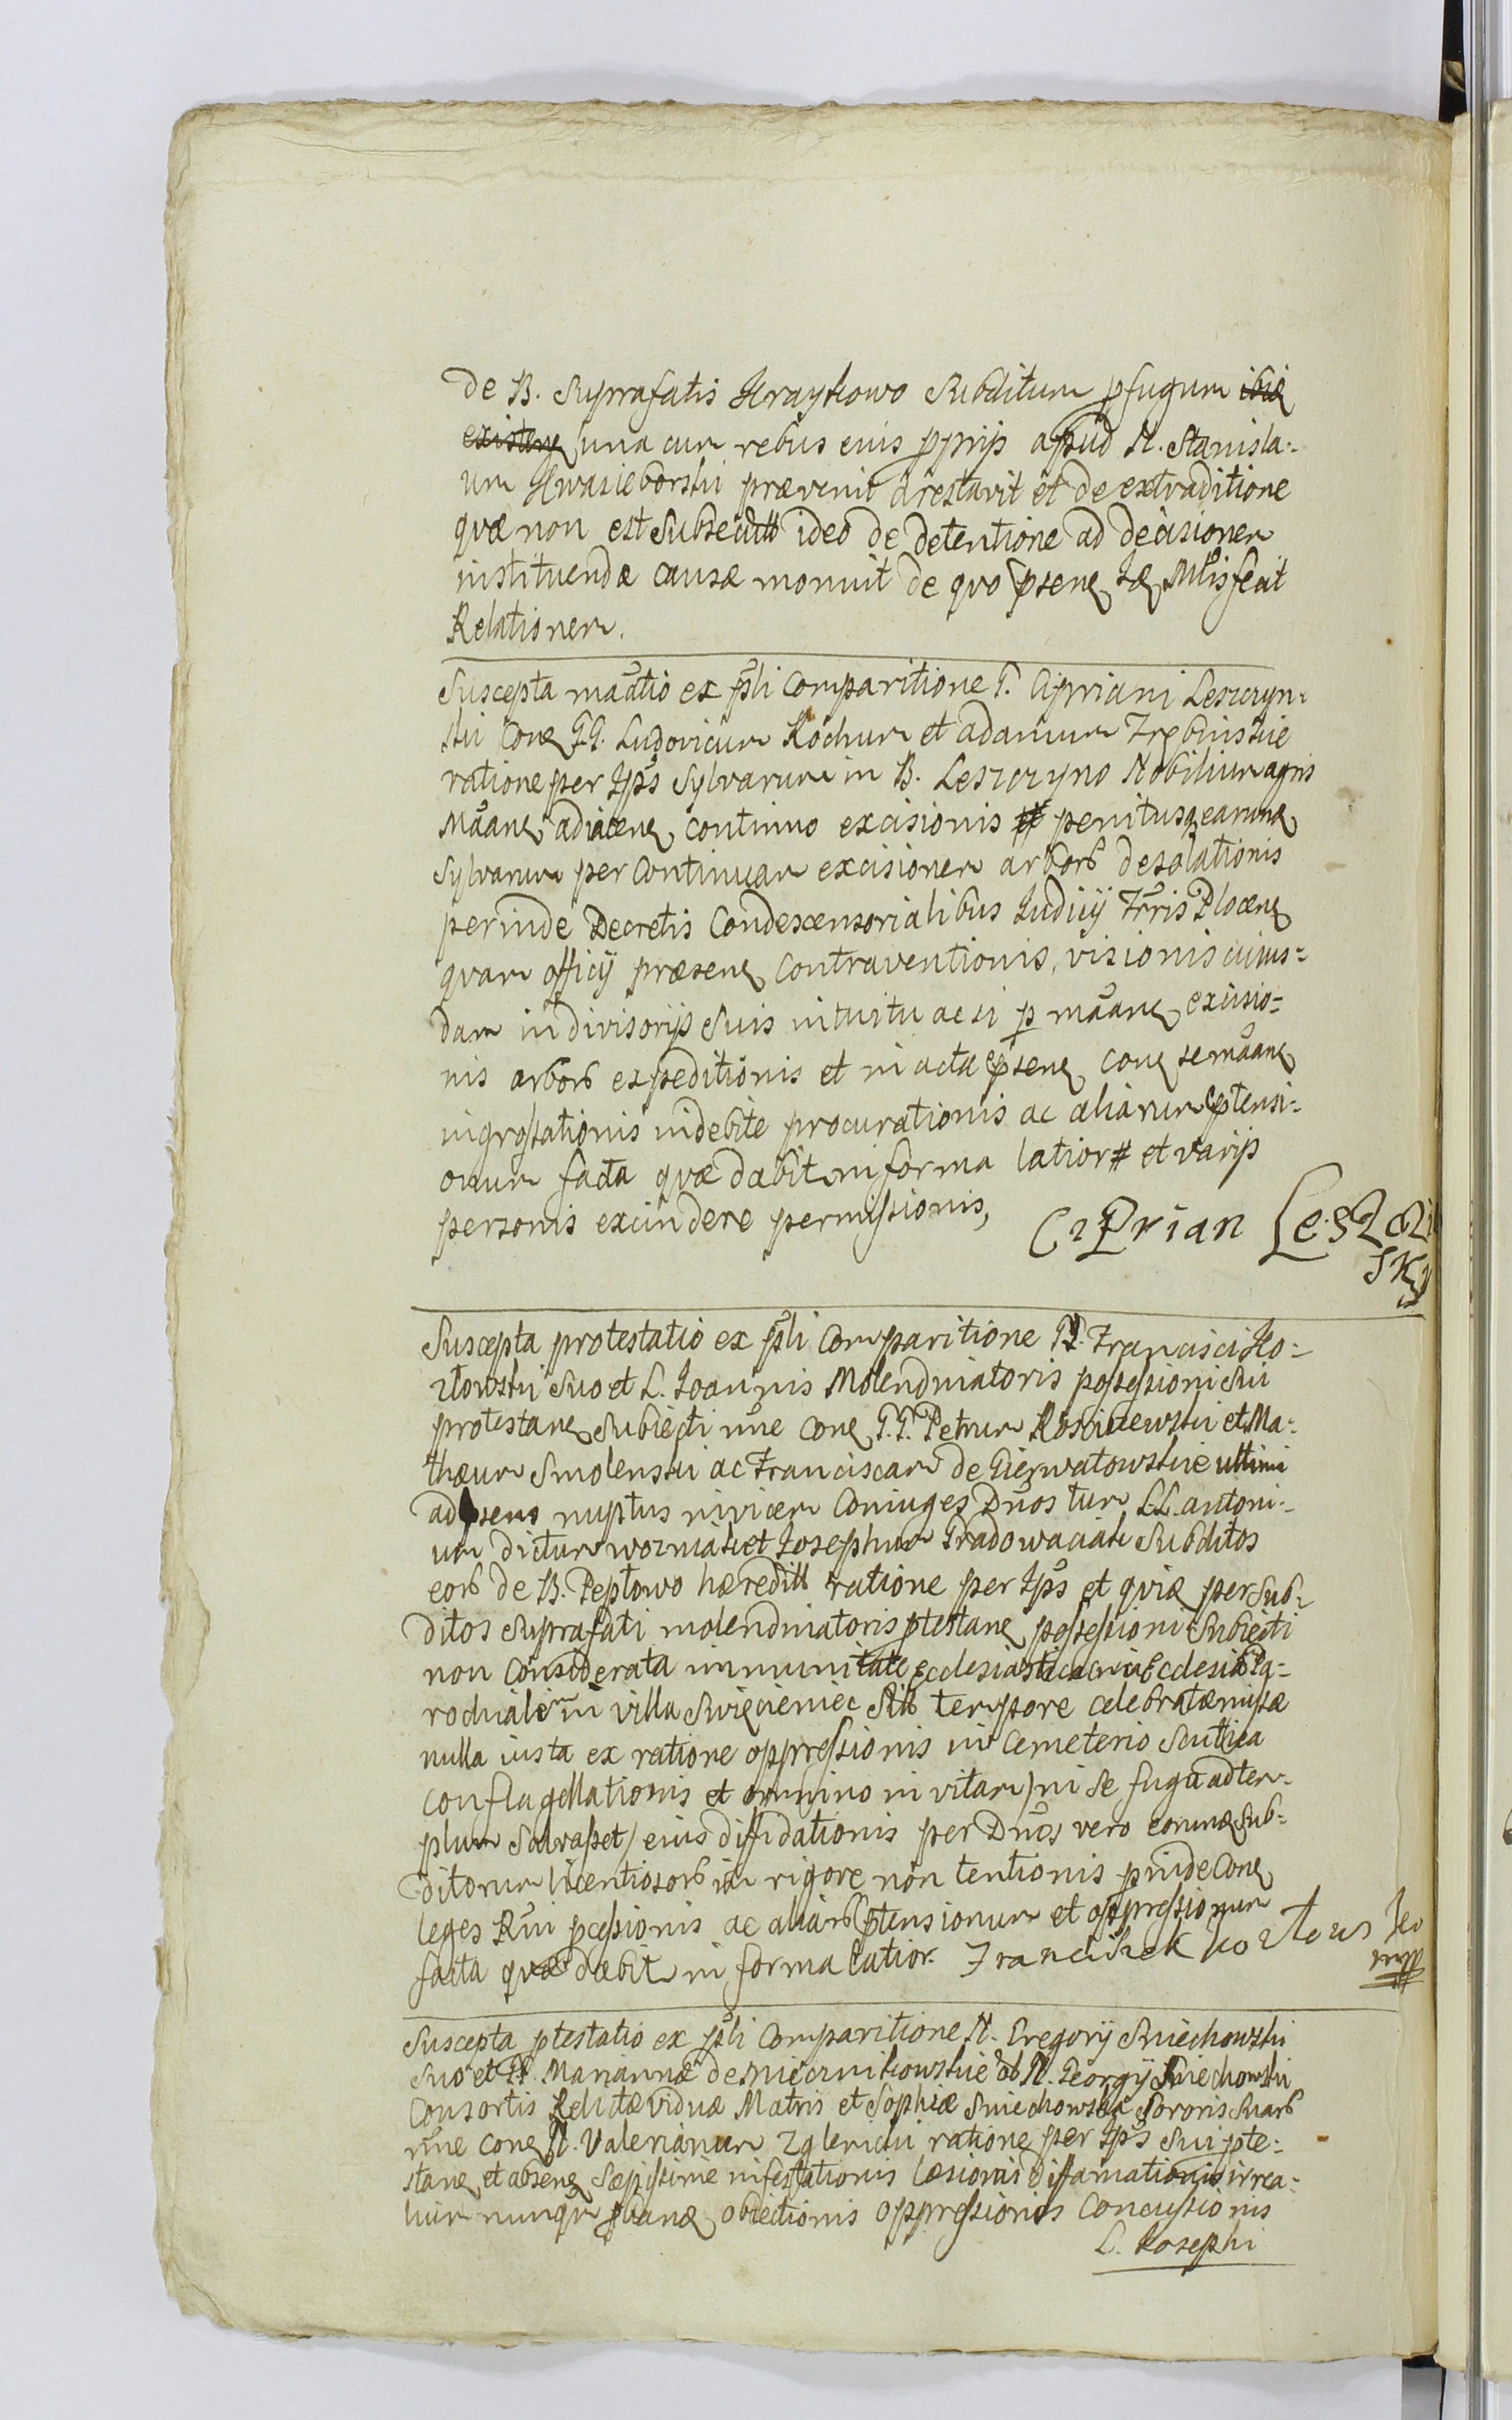 de B. Suprafatis Kraykowo Subditum pfugum ibid
existen una cum rebus eius pprijs apud N. Stanisla-
um Kwasieborski prævenit arestavit et de extraditione
quæ non est Subsecuta ideo de detentione ad decisionem
instituendæ causæ monuit de quo psen Iæ Mtis fecit
Relationem.
Suscepta maãtio ex pñli Comparitione G. Cipriani Leszczyn-
ski Con G.G. Ludovicum Rochum et adamum
ratione per Ips Sylvarum in B. Leszczyno Nobilium agris
Mãan adiacen continuo excisionis et penitusq earund
Sylvarum per Continuam excisionem arbor desolationis
perinde Decretis Condescensorialibus Iudicij Trris Plocen
quam officij præsen Contraventionis, visionis cuius-
dam indivisorijs Suis intuitu ac si p mãan excisio-
nis arbor expeditionis et in acta psen con se mãan
ingrossationis indebite procurationis ac aliarum ptensi-
onum facta quæ dabit in forma latior et varijs
personis excindere permissionis,
Ciprian Leszczi
sky
Suscepta protestatio ex pñli Comparitione G. Francisci Ko-
złowski Suo et L. Joannis Molendinatoris possessioni Sui
protestan Subiecti nne Con G.G. Petrum Kosciuewski et Ma-
thæum Smolenski ac Franciscam de Gierwatowskie ultimi
ad psens nuptus invicem Coniuges Dnos tum LL. antoni-
um dictum wozniak et Josephum Gradowaciak Subditos
eor de B. Peplowo hæredit ratione per Ips et quia per Sub-
ditos Suprafati molendinatoris ptestan possessioni Subiecti
non Considerata immunitate Ecclesiastica in Ecclesia Pa-
rochiali in villa Swięcieniec Sit tempore celebratæ missæ
nulla iusta ex ratione oppressionis in Cemeterio Scutica
conflagellationis et omnino in vitam) ni se fuga ad tem-
plum Salvasset/ eius diffidationis per Dnos vero eorund Sub-
ditorum licentiosor in rigore non tentionis pinde Con
leges Rni pcessionis ac aliar ptensionum et oppressionum
facta quæ dabit in forma latior. Franciszek Kozłowski
mpp
Suscepta ptestatio ex pñli Comparitione N. Gregorij Sniechowski
Suo et G. Mariannæ de Miecznikowskie ol N. Georgij Sniechowski
Consortis Relictæ viduæ Matris et Sophiæ Sniechowska Sororis Suar
nne con N. Valerianum Zglenicki ratione per Ips Sui pte-
stan et absen Sæpissime infestationis læsionis diffamationis irrea-
lium nunqm pban obiectionis oppressionis Concussionis
L. Josephi